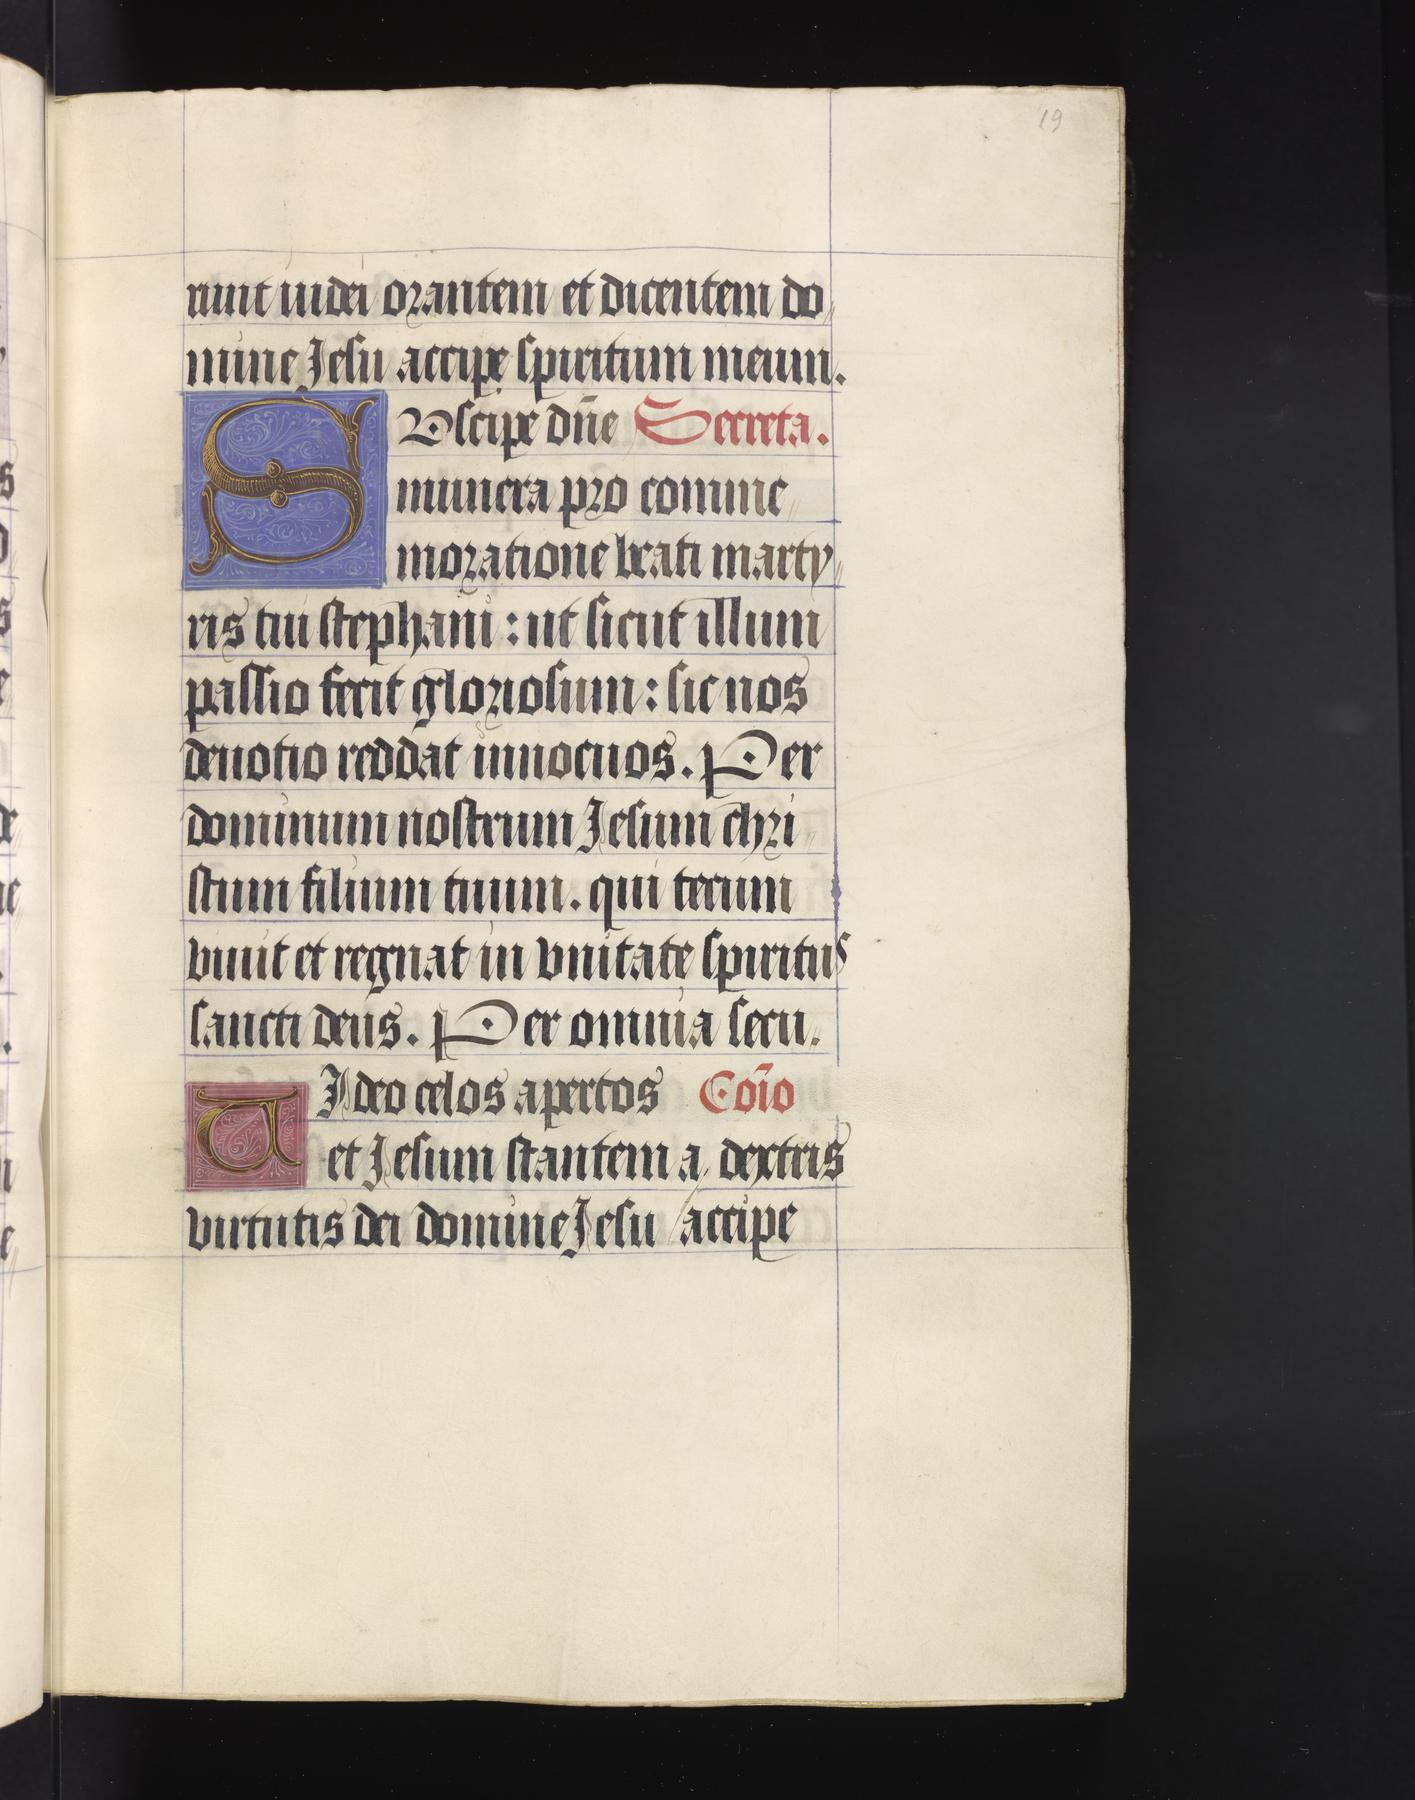 19
runt iudei orantem et dicentem do
mine Jesu accipe spiritum meum.
SUscipe dn̄e Secreta.
munera pro comme
moratione beati marty
ris tui stephani : ut sicut illum
passio fecit gloriosum : sic nos
deuotio reddat innocuos. Per
dominum nostrum Jesum chri
stum filium tuum. qui tecum
viuit et regnat in vnitate spiritus
sancti deus. Per omnia secu.
VIdeo celos apertos Cōio
et Jesum stantem a dextris
virtutis dei domine Jesu accipe